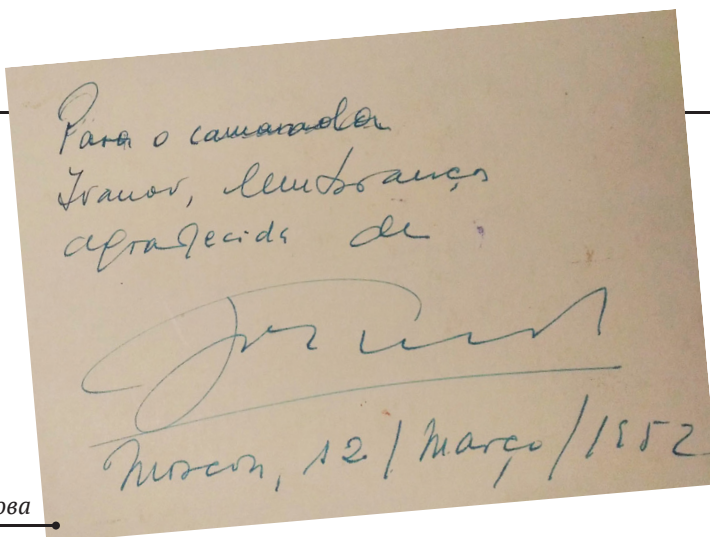 Para o camarada
Ivanov, lembrança
agradecida de
Moscou, 12/Março/1952
ова